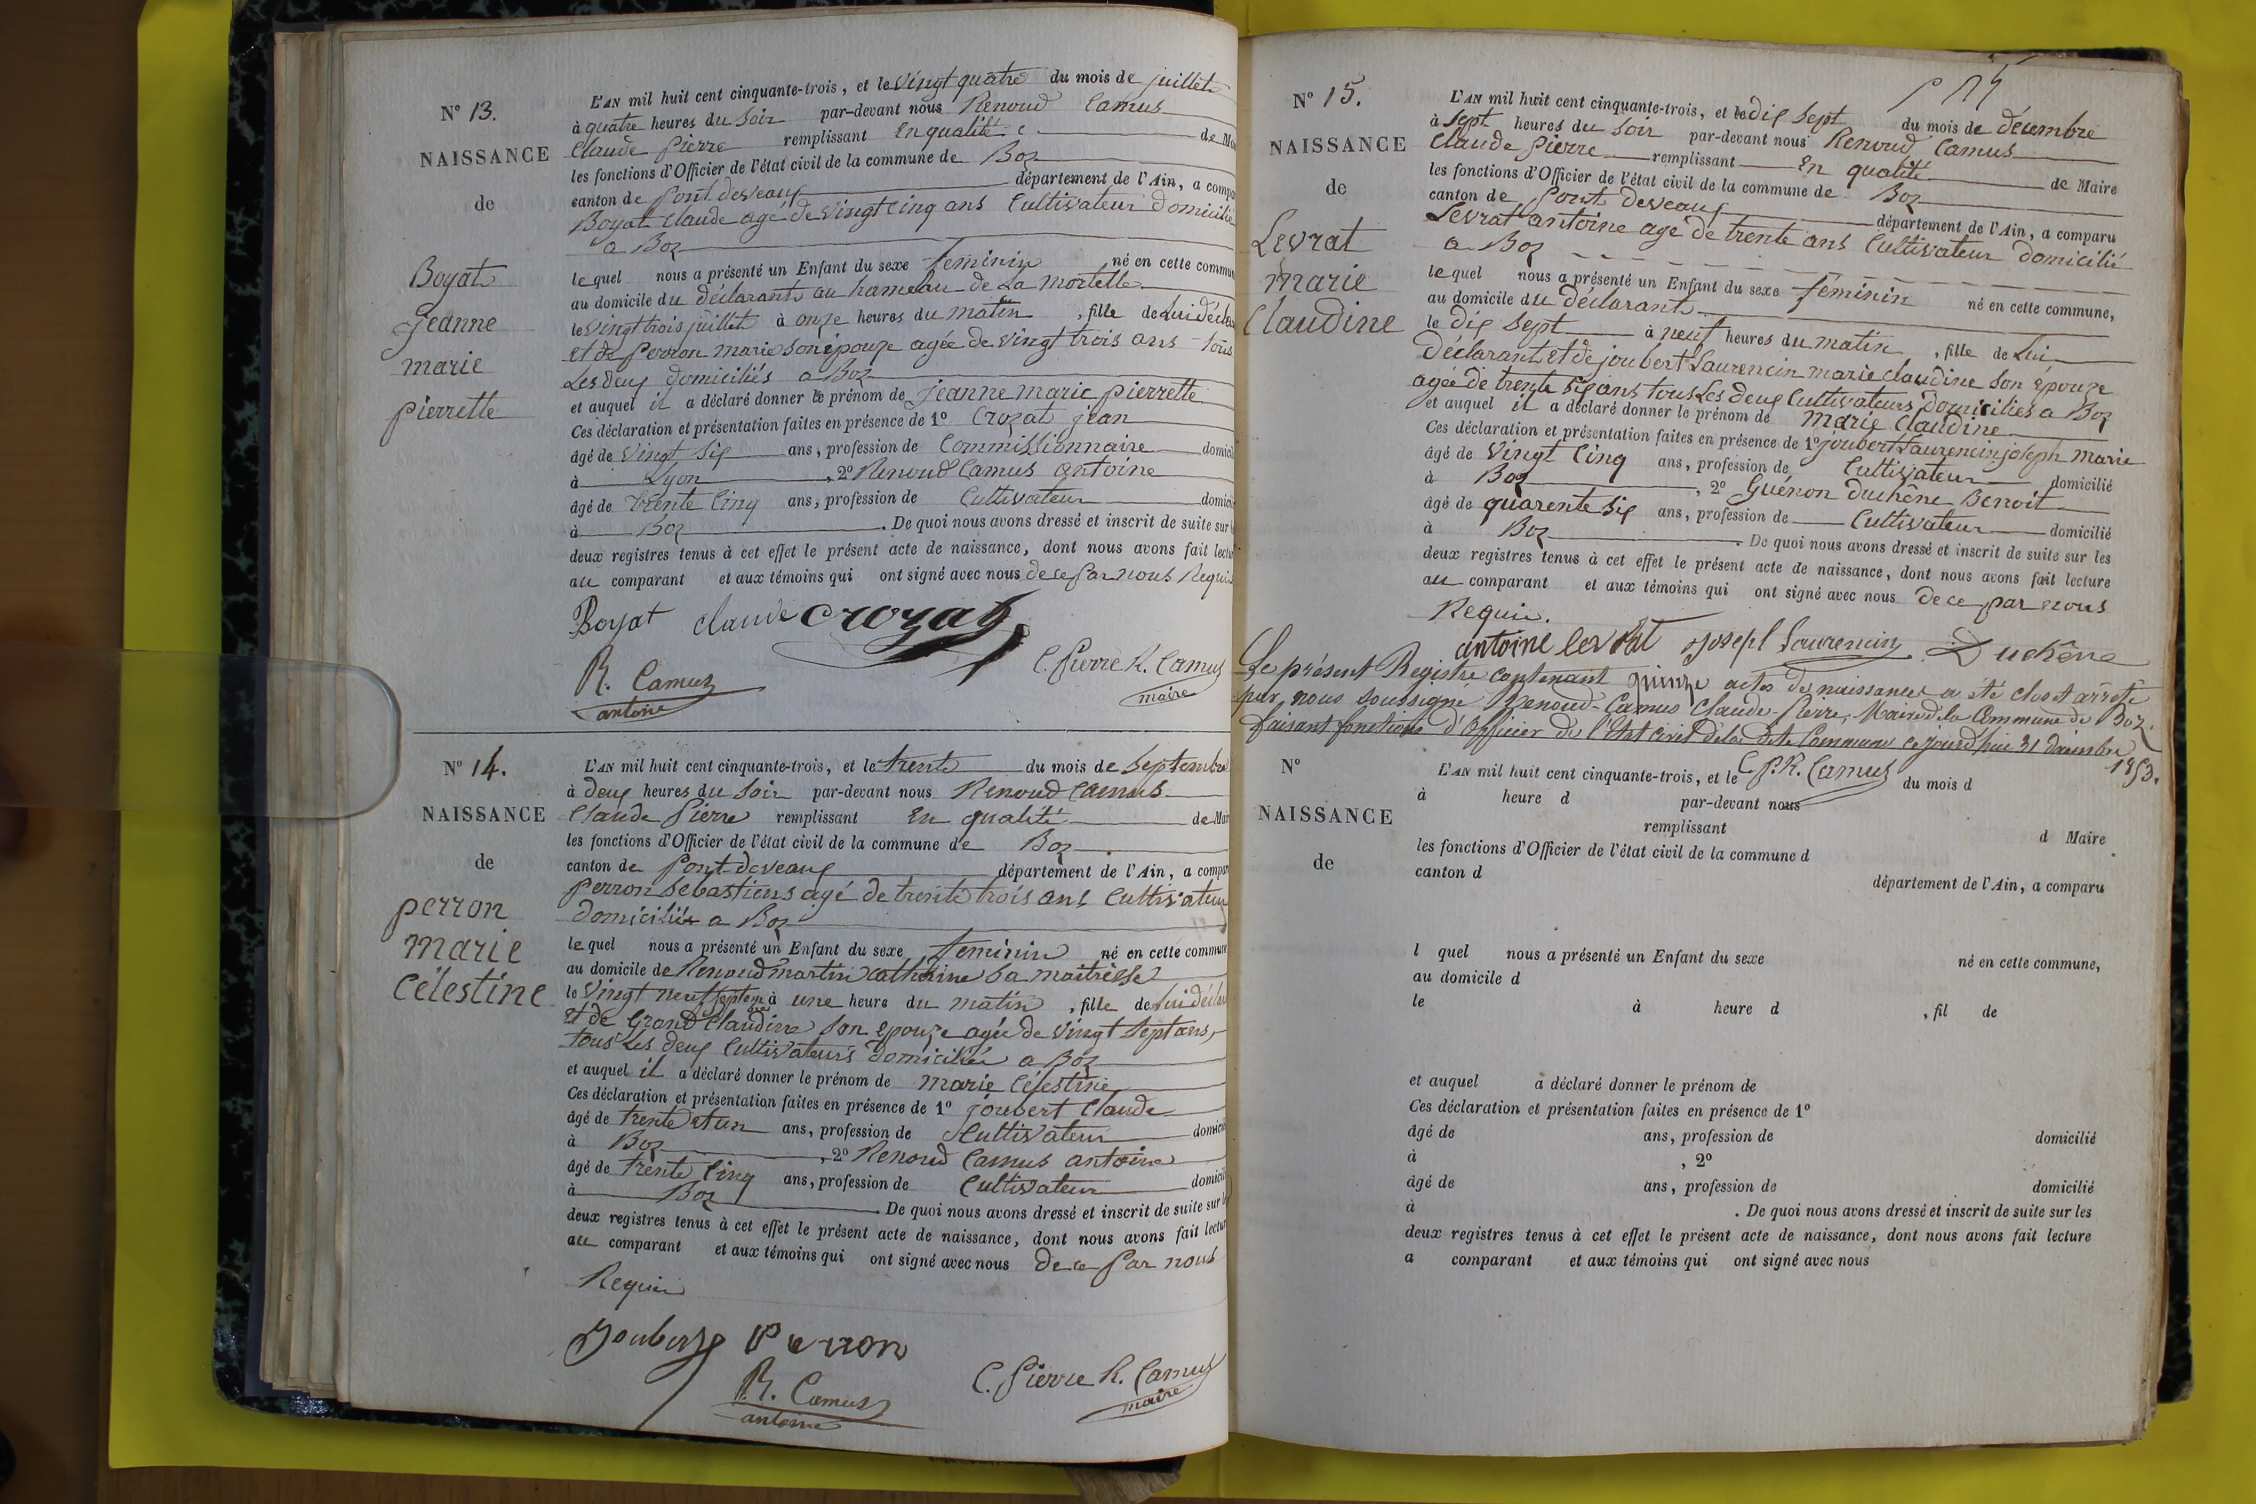 N° 13.
NAISSANCE
de
Boyat
jeanne
marie
pierrette
L'AN mil huit cent cinquante-trois, et le vingt quatre du mois de juillet
à quatre heures du Soir par-devant nous Renoud Camus
Claude Pierre remplissant En qualité de Mai
les fonctions d'Officier de l'état civil de la commune de Boz
canton de Pont deveaux département de l'Ain, a compa
Boyat Claude agé de vingt Cinq ans Cultivateur domicilié
a Boz
le quel nous a présenté un Enfant du sexe feminin né en cette commun
au domicile du déclarant au hameau de La mortelle
le vingt trois juillet à onze heures du matin, fille de Lui déclar
et de perron marie son épouze agée de vingt trois ans tous
Les deux domiciliés a Boz
et auquel il a déclaré donner le prénom de jeanne marie pierrette
Ces déclaration et présentation faites en présence de 1° Crozat jean
âgé de vingt Six ans, profession de Commissionnaire domicili
à Lyon, 2° Renoud Camus antoine
âgé de trente Cinq ans, profession de Cultivateur domicili
à Boz. De quoi nous avons dressé et inscrit de suite sur l
deux registres tenus à cet effet le présent acte de naissance, dont nous avons fait lectur
au comparant et aux témoins qui ont signé avec nous de ce Par nous Requis
Boyat claude Crozat
R. Camus
antoine
C. Pierre R. Camus
maire
N° 14.
NAISSANCE
de
perron
marie
Célestine
L'AN mil huit cent cinquante-trois, et le trente du mois de Septembre
à deux heures du Soir par-devant nous Renoud Camus
Claude Pierre remplissant En qualité de Mair
les fonctions d'Officier de l'état civil de la commune de Boz
canton de Pont deveaux département de l'Ain, a compa
perron Sebastiens agé de trente trois ans Cultivateur
domicilié a Boz
le quel nous a présenté un Enfant du sexe feminin né en cette commune
au domicile de Renoud martin catherine Sa maitresse
le vingt neuf septembre à une heure du matin, fille de Lui déclar
et de Grand Claudine Son Epouze agée de vingt Sept ans,
tous Les deux Cultivateurs domiciliés a Boz
et auquel il a déclaré donner le prénom de marie Célestine
Ces déclaration et présentation faites en présence de 1° joubert Claude
âgé de trente et un ans, profession de Cultivateur domicili
à Boz, 2° Renoud Camus antoine
âgé de trente Cinq ans, profession de Cultivateur domicili
à Boz. De quoi nous avons dressé et inscrit de suite sur le
deux registres tenus à cet effet le présent acte de naissance, dont nous avons fait lectur
au comparant et aux témoins qui ont signé avec nous de ce Par nous
Requis
Joubert Perron
R. Camus
antoine
C. Pierre R. Camus
maire
N° 15.
NAISSANCE
de
Levrat
marie
Claudine
L'AN mil huit cent cinquante-trois, et le dix Sept du mois de décembre
à Sept heures du Soir par-devant nous Renoud Camus
Claude Pierre remplissant En qualité de Maire
les fonctions d'Officier de l'état civil de la commune de Boz
canton de Pont deveaux département de l'Ain, a comparu
Levrat antoine agé de trente ans Cultivateur domicilié
a Boz
le quel nous a présenté un Enfant du sexe feminin né en cette commune,
au domicile du déclarant
le dix Sept à neuf heures du matin, fille de Lui
déclarant et de joubert Laurencin marie claudine Son épouze
agée de trente Six ans tous Les deux Cultivateurs domiciliés a Boz
et auquel il a déclaré donner le prénom de marie Claudine
Ces déclaration et présentation faites en présence de 1° joubert Laurencin joseph marie
âgé de vingt Cinq ans, profession de Cultivateur domicilié
à Boz, 2° Guénon duchêne Benoit
âgé de quarente Six ans, profession de Cultivateur domicilié
à Boz. De quoi nous avons dressé et inscrit de suite sur les
deux registres tenus à cet effet le présent acte de naissance, dont nous avons fait lecture
au comparant et aux témoins qui ont signé avec nous de ce par nous
Requis.
antoine levrat Joseph Laurencin Duchêne
Le présent Registre contenant quinze actes de naissances a été clos et arrêté
par nous soussigné Renoud-Camus Claude-Pierre, Maire de la Commune de Boz,
faisant fonctions d'Officier de l'Etat civil de la dite Commune ce jourd'hui 31 décembre
1853.
C. P. R. Camus
N°
NAISSANCE
de
L'AN mil huit cent cinquante-trois, et le du mois d
à heure d par-devant nous
remplissant d Maire
les fonctions d'Officier de l'état civil de la commune d
canton d département de l'Ain, a comparu
l quel nous a présenté un Enfant du sexe né en cette commune,
au domicile d
le à heure d , fil de
et auquel a déclaré donner le prénom de
Ces déclaration et présentation faites en présence de 1°
âgé de ans, profession de domicilié
à , 2°
âgé de ans, profession de domicilié
à . De quoi nous avons dressé et inscrit de suite sur les
deux registres tenus à cet effet le présent acte de naissance, dont nous avons fait lecture
a comparant et aux témoins qui ont signé avec nous